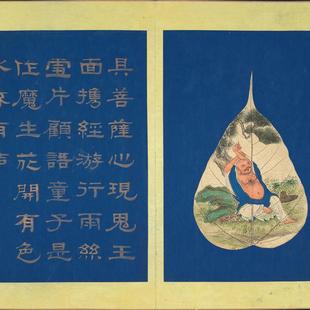 具菩薩心現鬼王
面攜經游行雨絲
雲片顧語童子是
住魔生花開有色